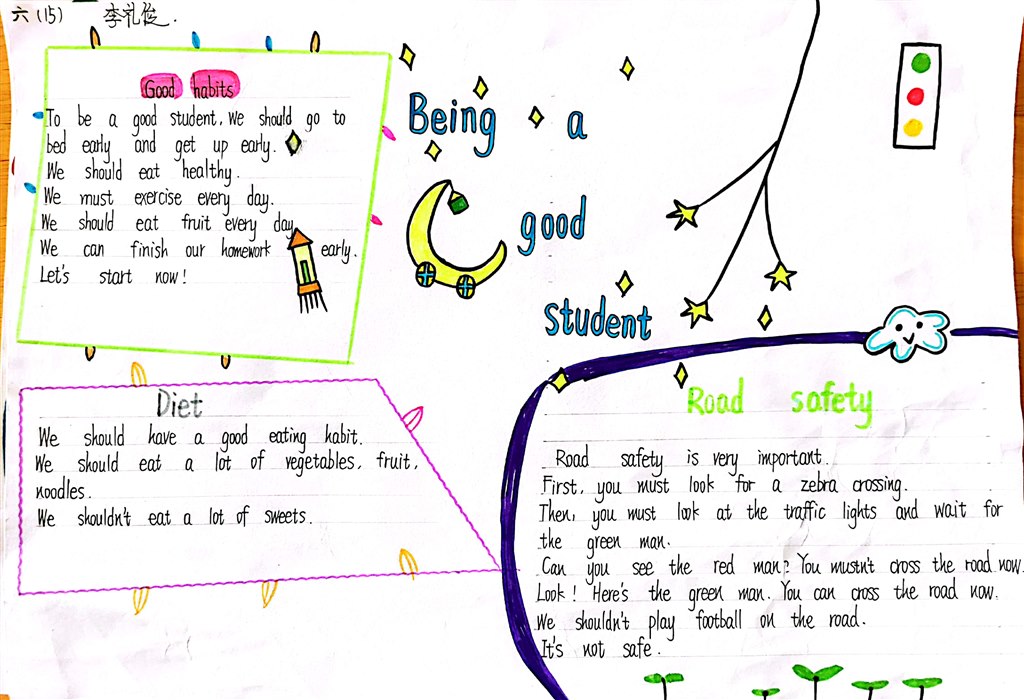 六(15) 李礼俊.
Being a
good
student
Good habits
To be a good student, We should go to
bed early and get up early.
We should eat healthy.
We must exercise every day.
We should eat fruit every day
We can finish our homework early.
Let's start now!
Diet
We should have a good eating habit.
We should eat a lot of vegetables, fruit,
noodles.
We shouldn't eat a lot of sweets.
Road safety
Road safety is very important.
First, you must look for a zebra crossing.
Then, you must look at the traffic lights and wait for
the green man.
Can you see the red man? You mustn't cross the road now.
Look! Here's the green man. You can cross the road now.
We shouldn't play football on the road.
It's not safe.